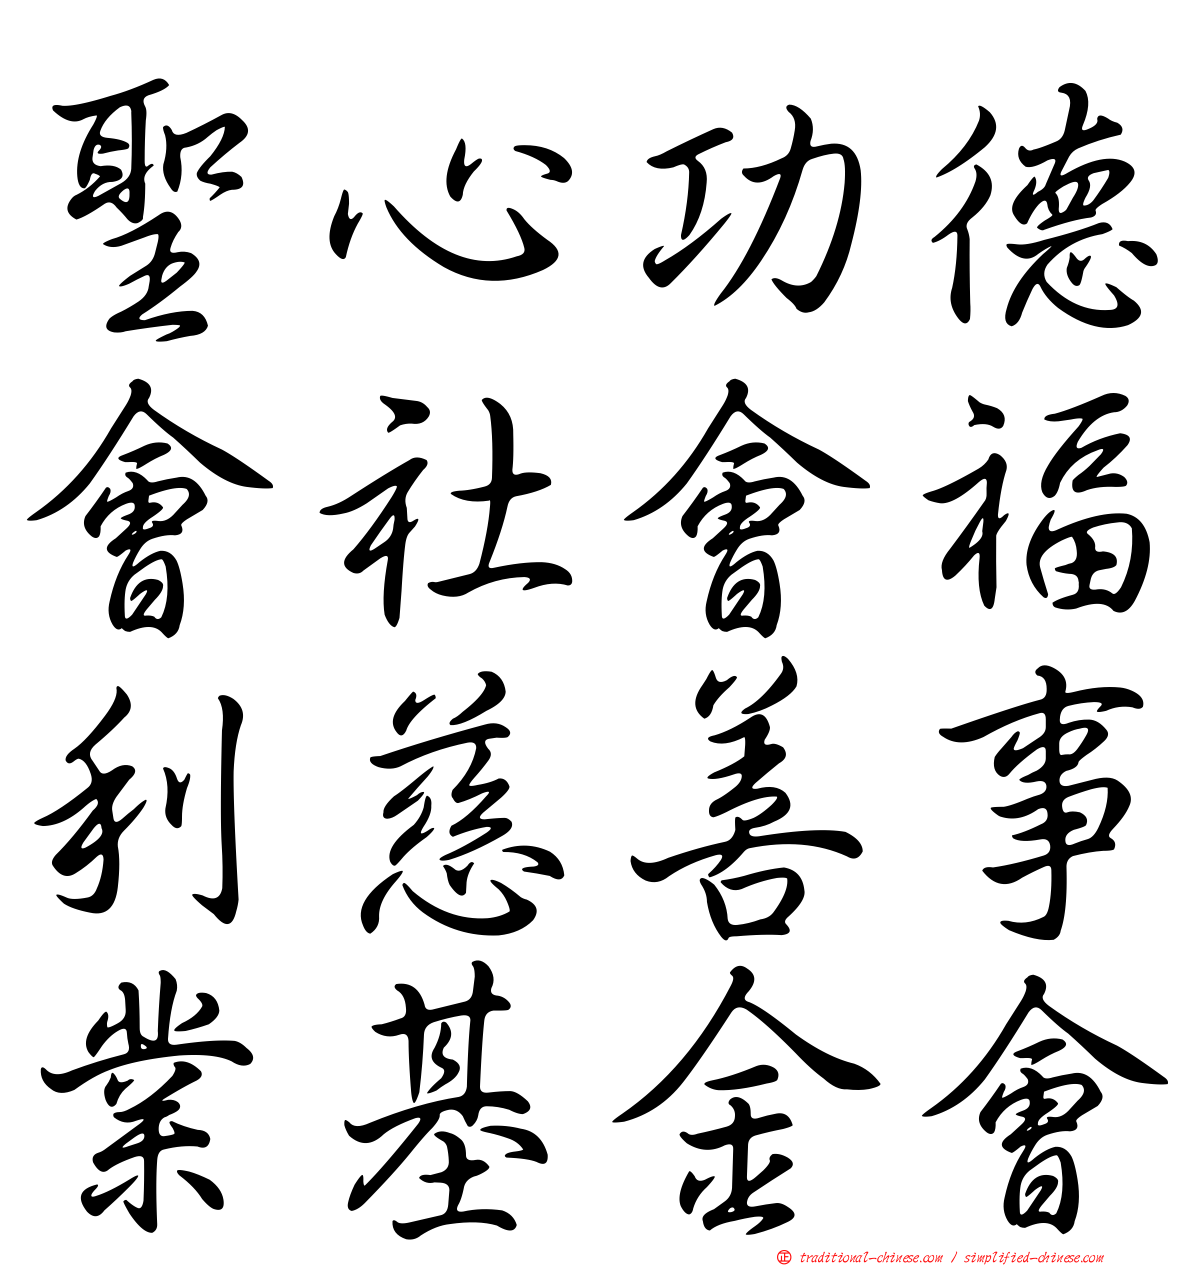 聖心功德
會社會福
利慈善事
業基金會
正 traditional-chinese.com / simplified-chinese.com